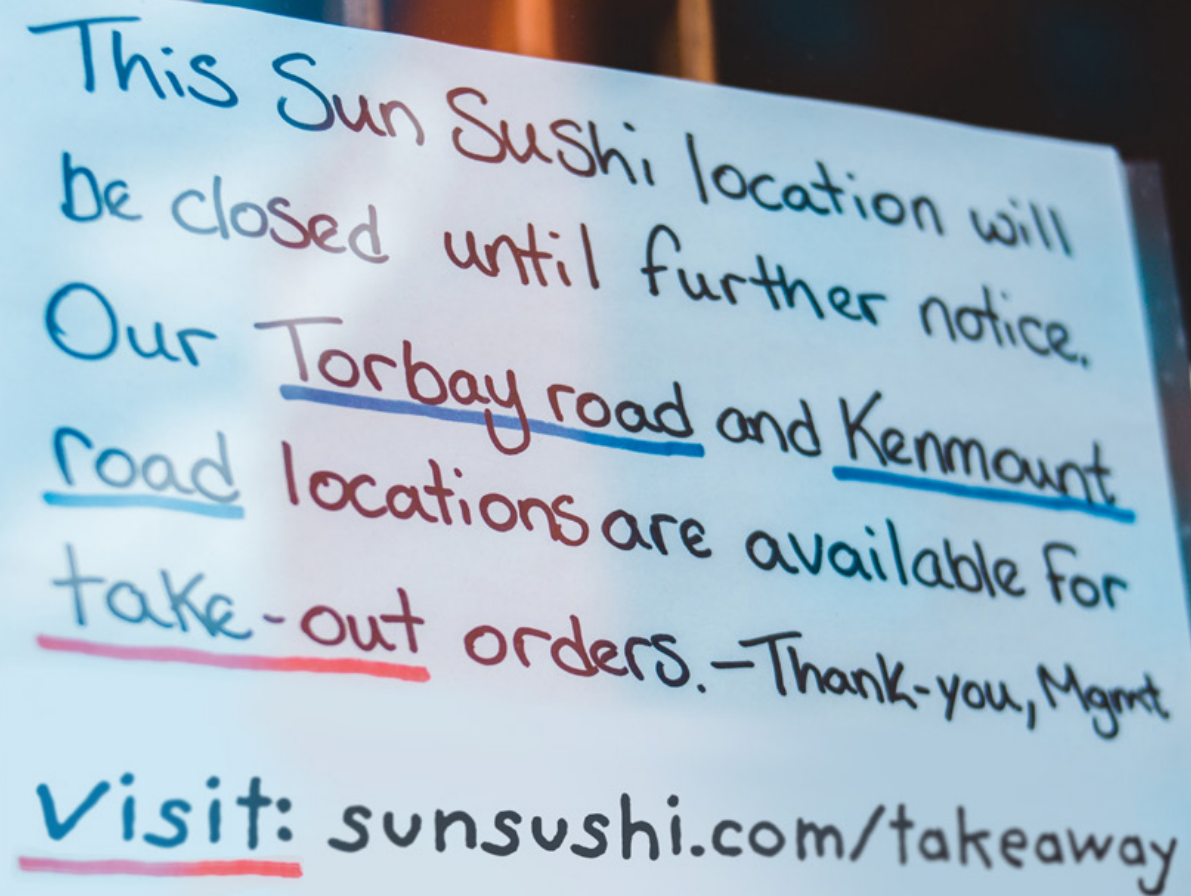 This Sun Sushi location will
be closed until further notice.
Our Torbay road and Kenmount
road locations are available for
take-out orders. -Thank-you, Mgmt
Visit: sunsushi.com/takeaway